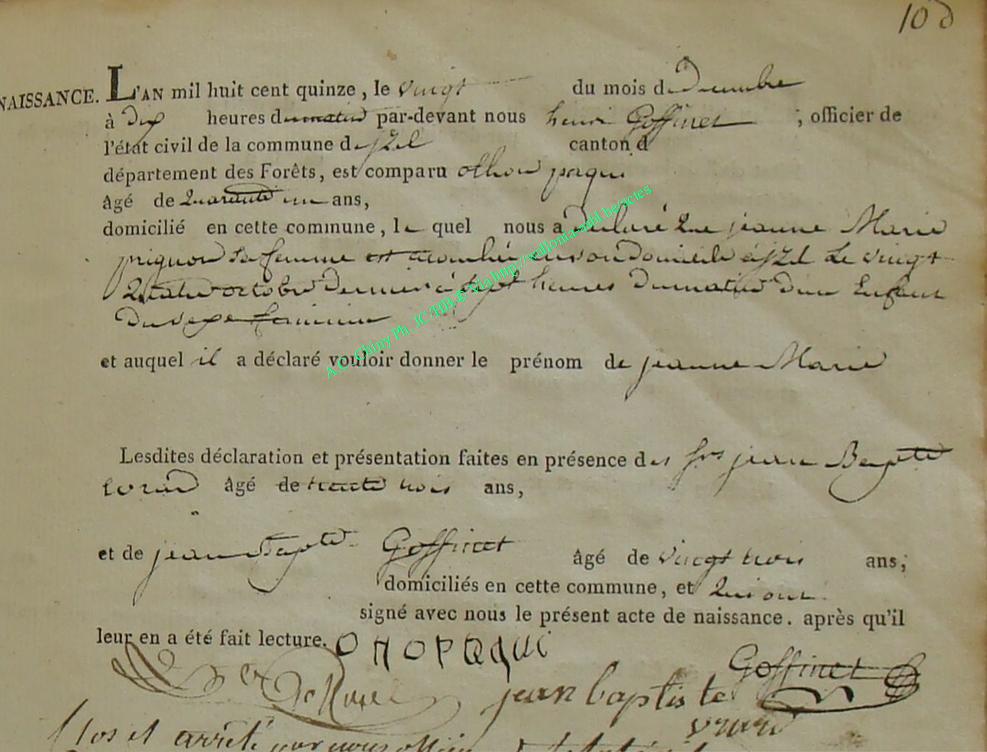 10
NAISSANCE. L'AN mil huit cent quinze, le vingt du mois de Decembre
à dix heures du matin par-devant nous henri Goffinet ; officier de
l'état civil de la commune de jzel canton d
département des Forêts, est comparu othon paqui
âgé de Quarante un ans,
domicilié en cette commune, le quel nous a declaré que jeanne Marie
prignon sa femme est accouchée en son domicile à jzel Le vingt
Quatre octobre dernier à sept heures du matin d'un Enfant
Du sexe feminin
et auquel il a déclaré vouloir donner le prénom de jeanne Marie
Lesdites déclaration et présentation faites en présence des jean Bapte
âgé de trente trois ans,
et de jean Bapte Goffinet âgé de vingt trois ans;
domiciliés en cette commune, et qui ont
signé avec nous le présent acte de naissance. après qu'il
leur en a été fait lecture. OHO PAQUI
Goffinet
jean baptiste
Clos et arreté par nous